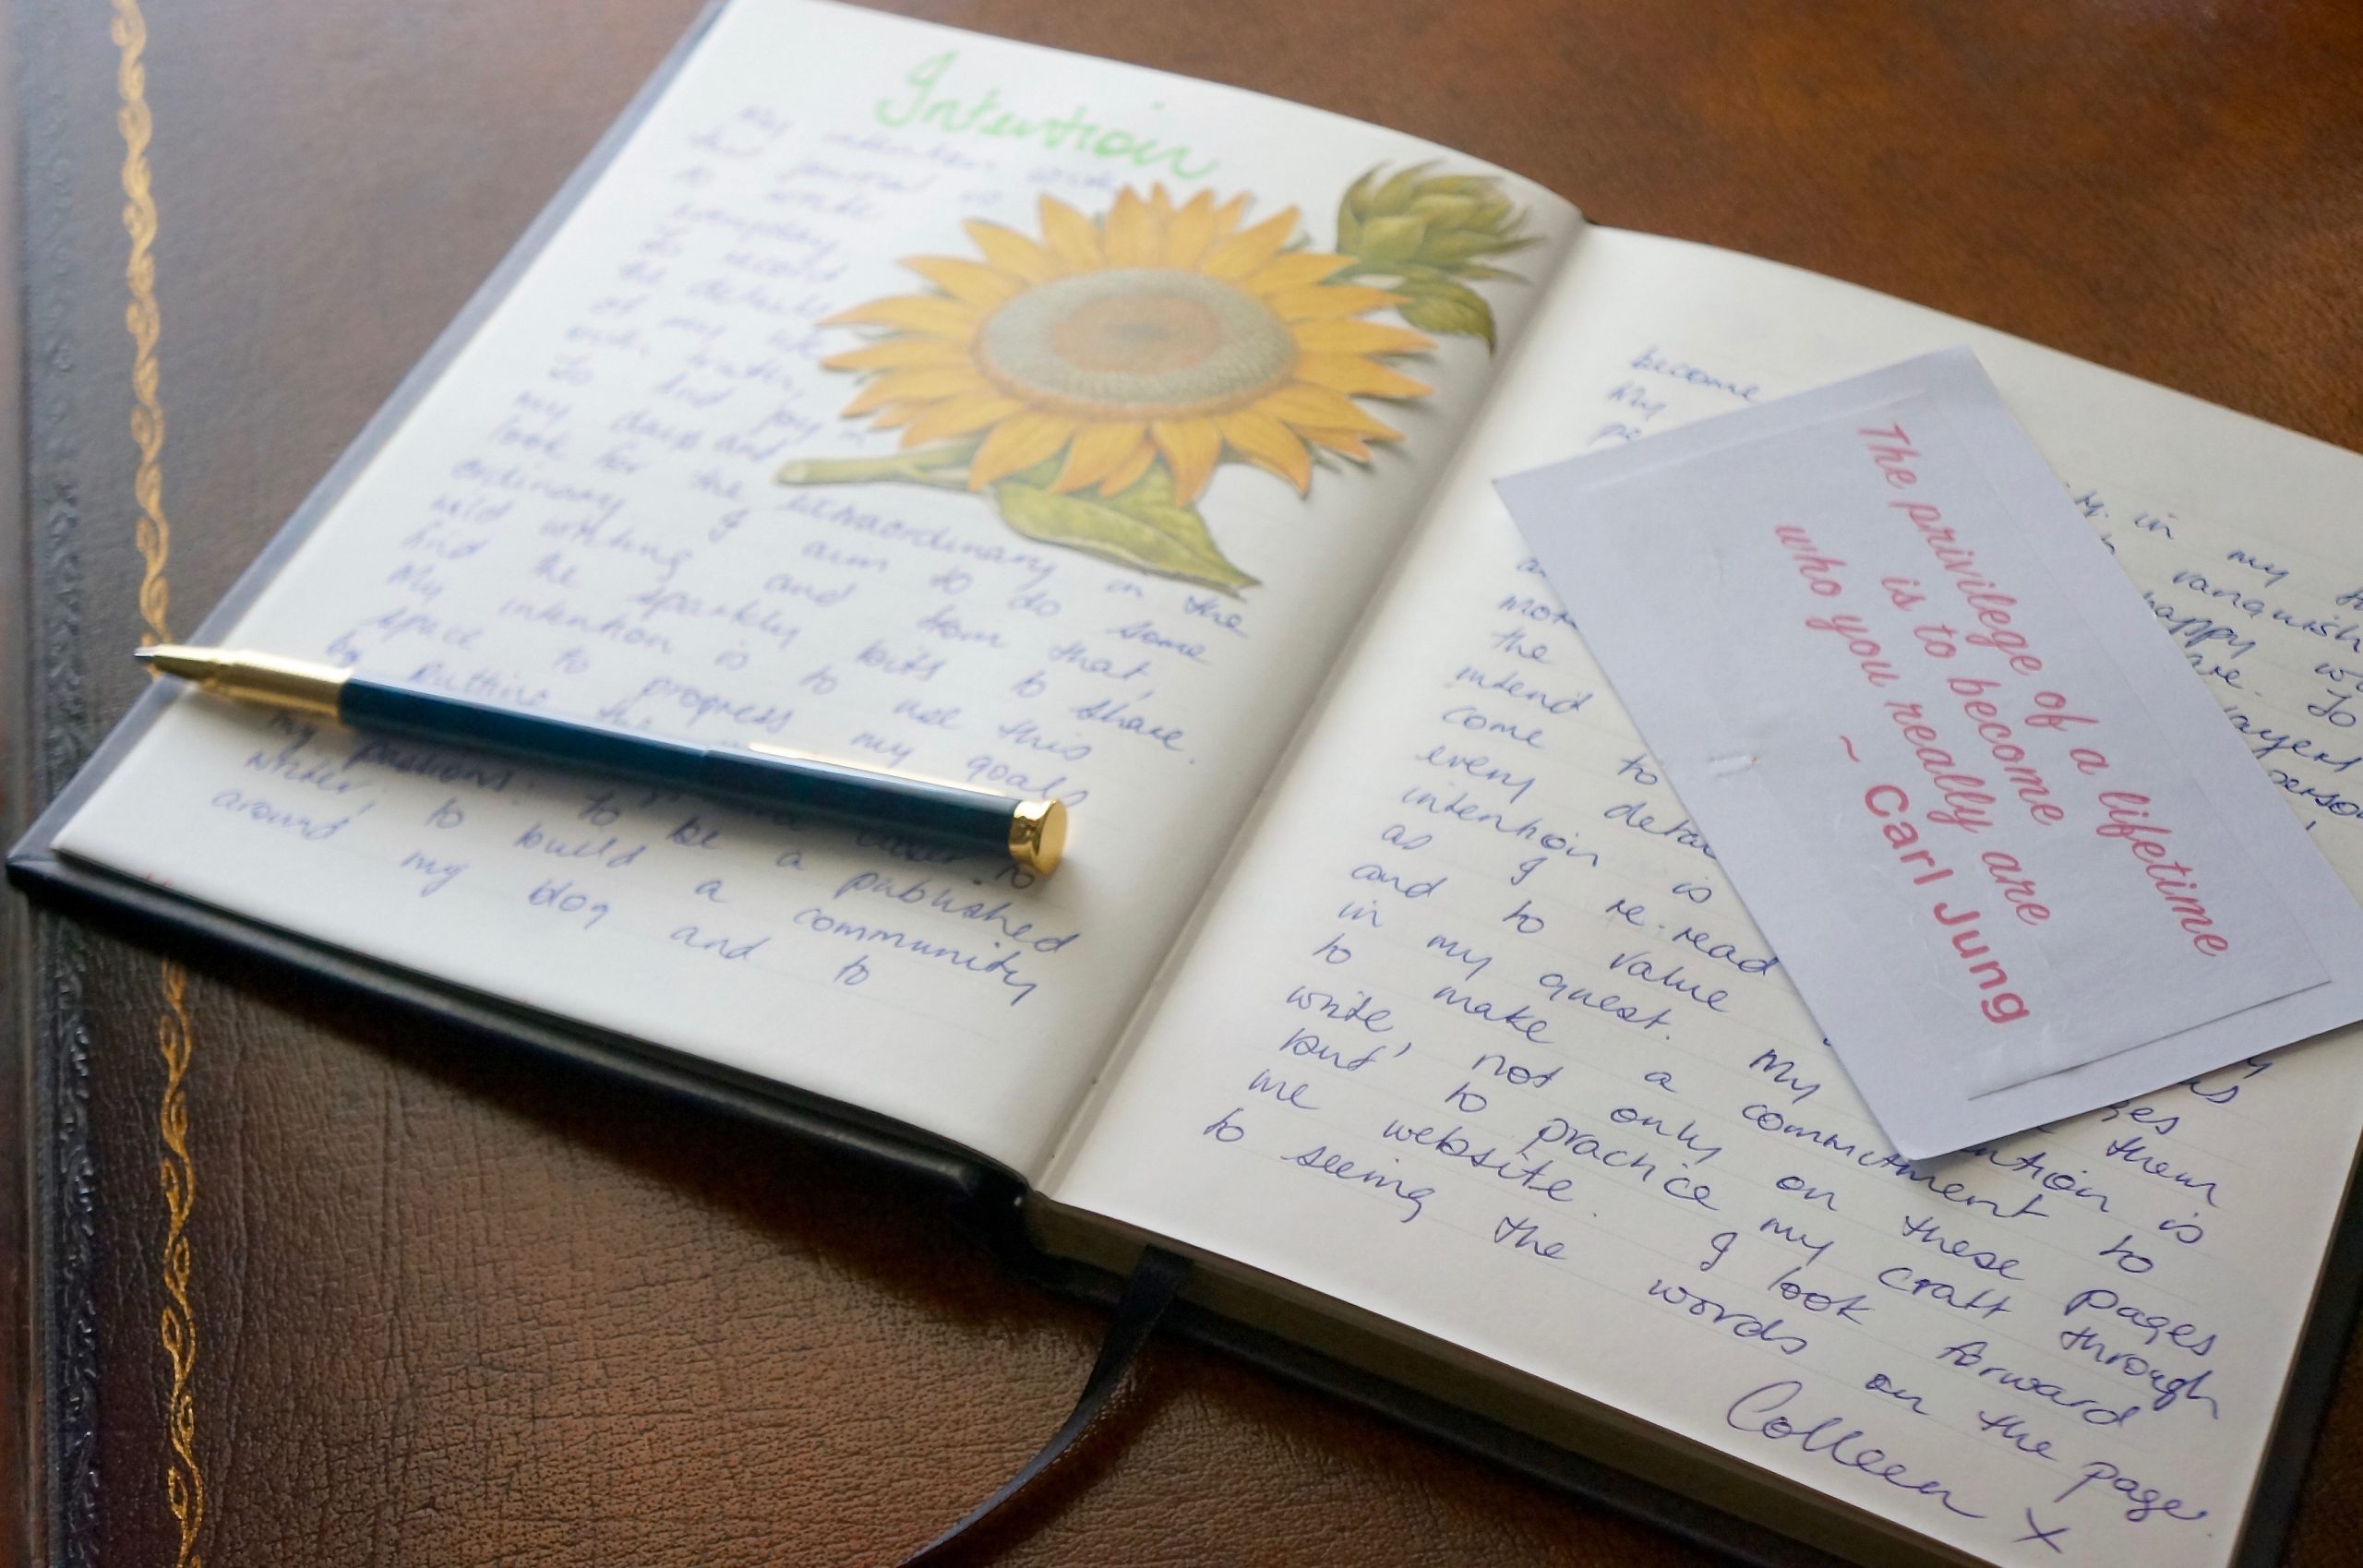 Intention
My intention with
this journal is
to write
everyday
to record
the details
of my life
with
to find joy in
my days and
look for the extraordinary in the
ordinary I aim to do some
wild writing and from that,
find the sparkly bits to share.
My intention is to use this
space to progress my goals
by putting the to
my passions: to be a published
writer, to build a community
around my blog and to
become
My
in my
vanquish
happy
To
layers
the
intend
come to
every
intention is
as I re-read
and to value them
in my quest. My is
to make a commitment to
write, not only on these pages
but to practice my craft through
me website. I look forward
to seeing the words on the page.
Colleen x
The privilege of a lifetime
is to become
who you really are
~ Carl Jung